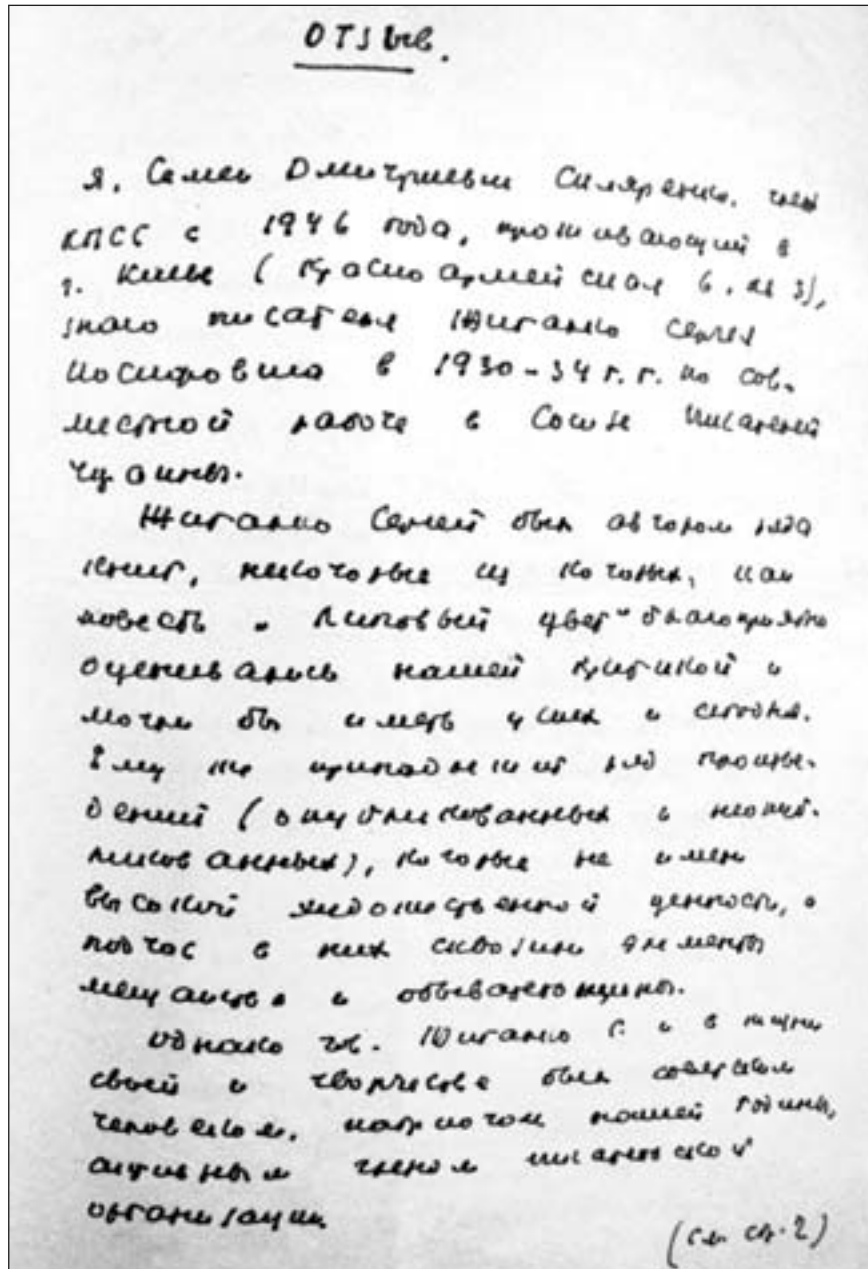 ОТЗЫВ.
Я, Семен Дмитриевич Скляренко, член
КПСС с 1946 года, проживающий в
г. Киеве (Красноармейская 6, кв 3),
знаю писателя Жигалко Сергея
в 1930-34 г.г. по сов-
местной работе в Союзе Писателей
Украины.
Жигалко Сергей был автором ряда
книг, некоторые из которых, как
повесть „Липовый цвет" благоприятно
оценивались нашей критикой и
могли бы иметь успех и сегодня.
Ему же принадлежит ряд произве-
дений (опубликованных и неопуб-
ликованных), которые не имели
высокой художественной ценности, а
подчас в них сквозили элементы
мещанства и обывательщины.
Однако тов. Жигалко С. и в жизни
своей и творчестве был советским
человеком, патриотом нашей Родины,
активным членом писательской
организации
(см. ст. 2)